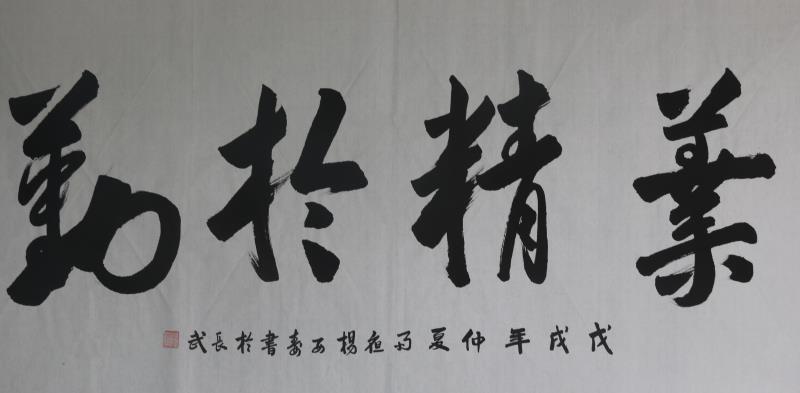 業精於勤
戊戌年仲夏雨夜楊万壽書於長武